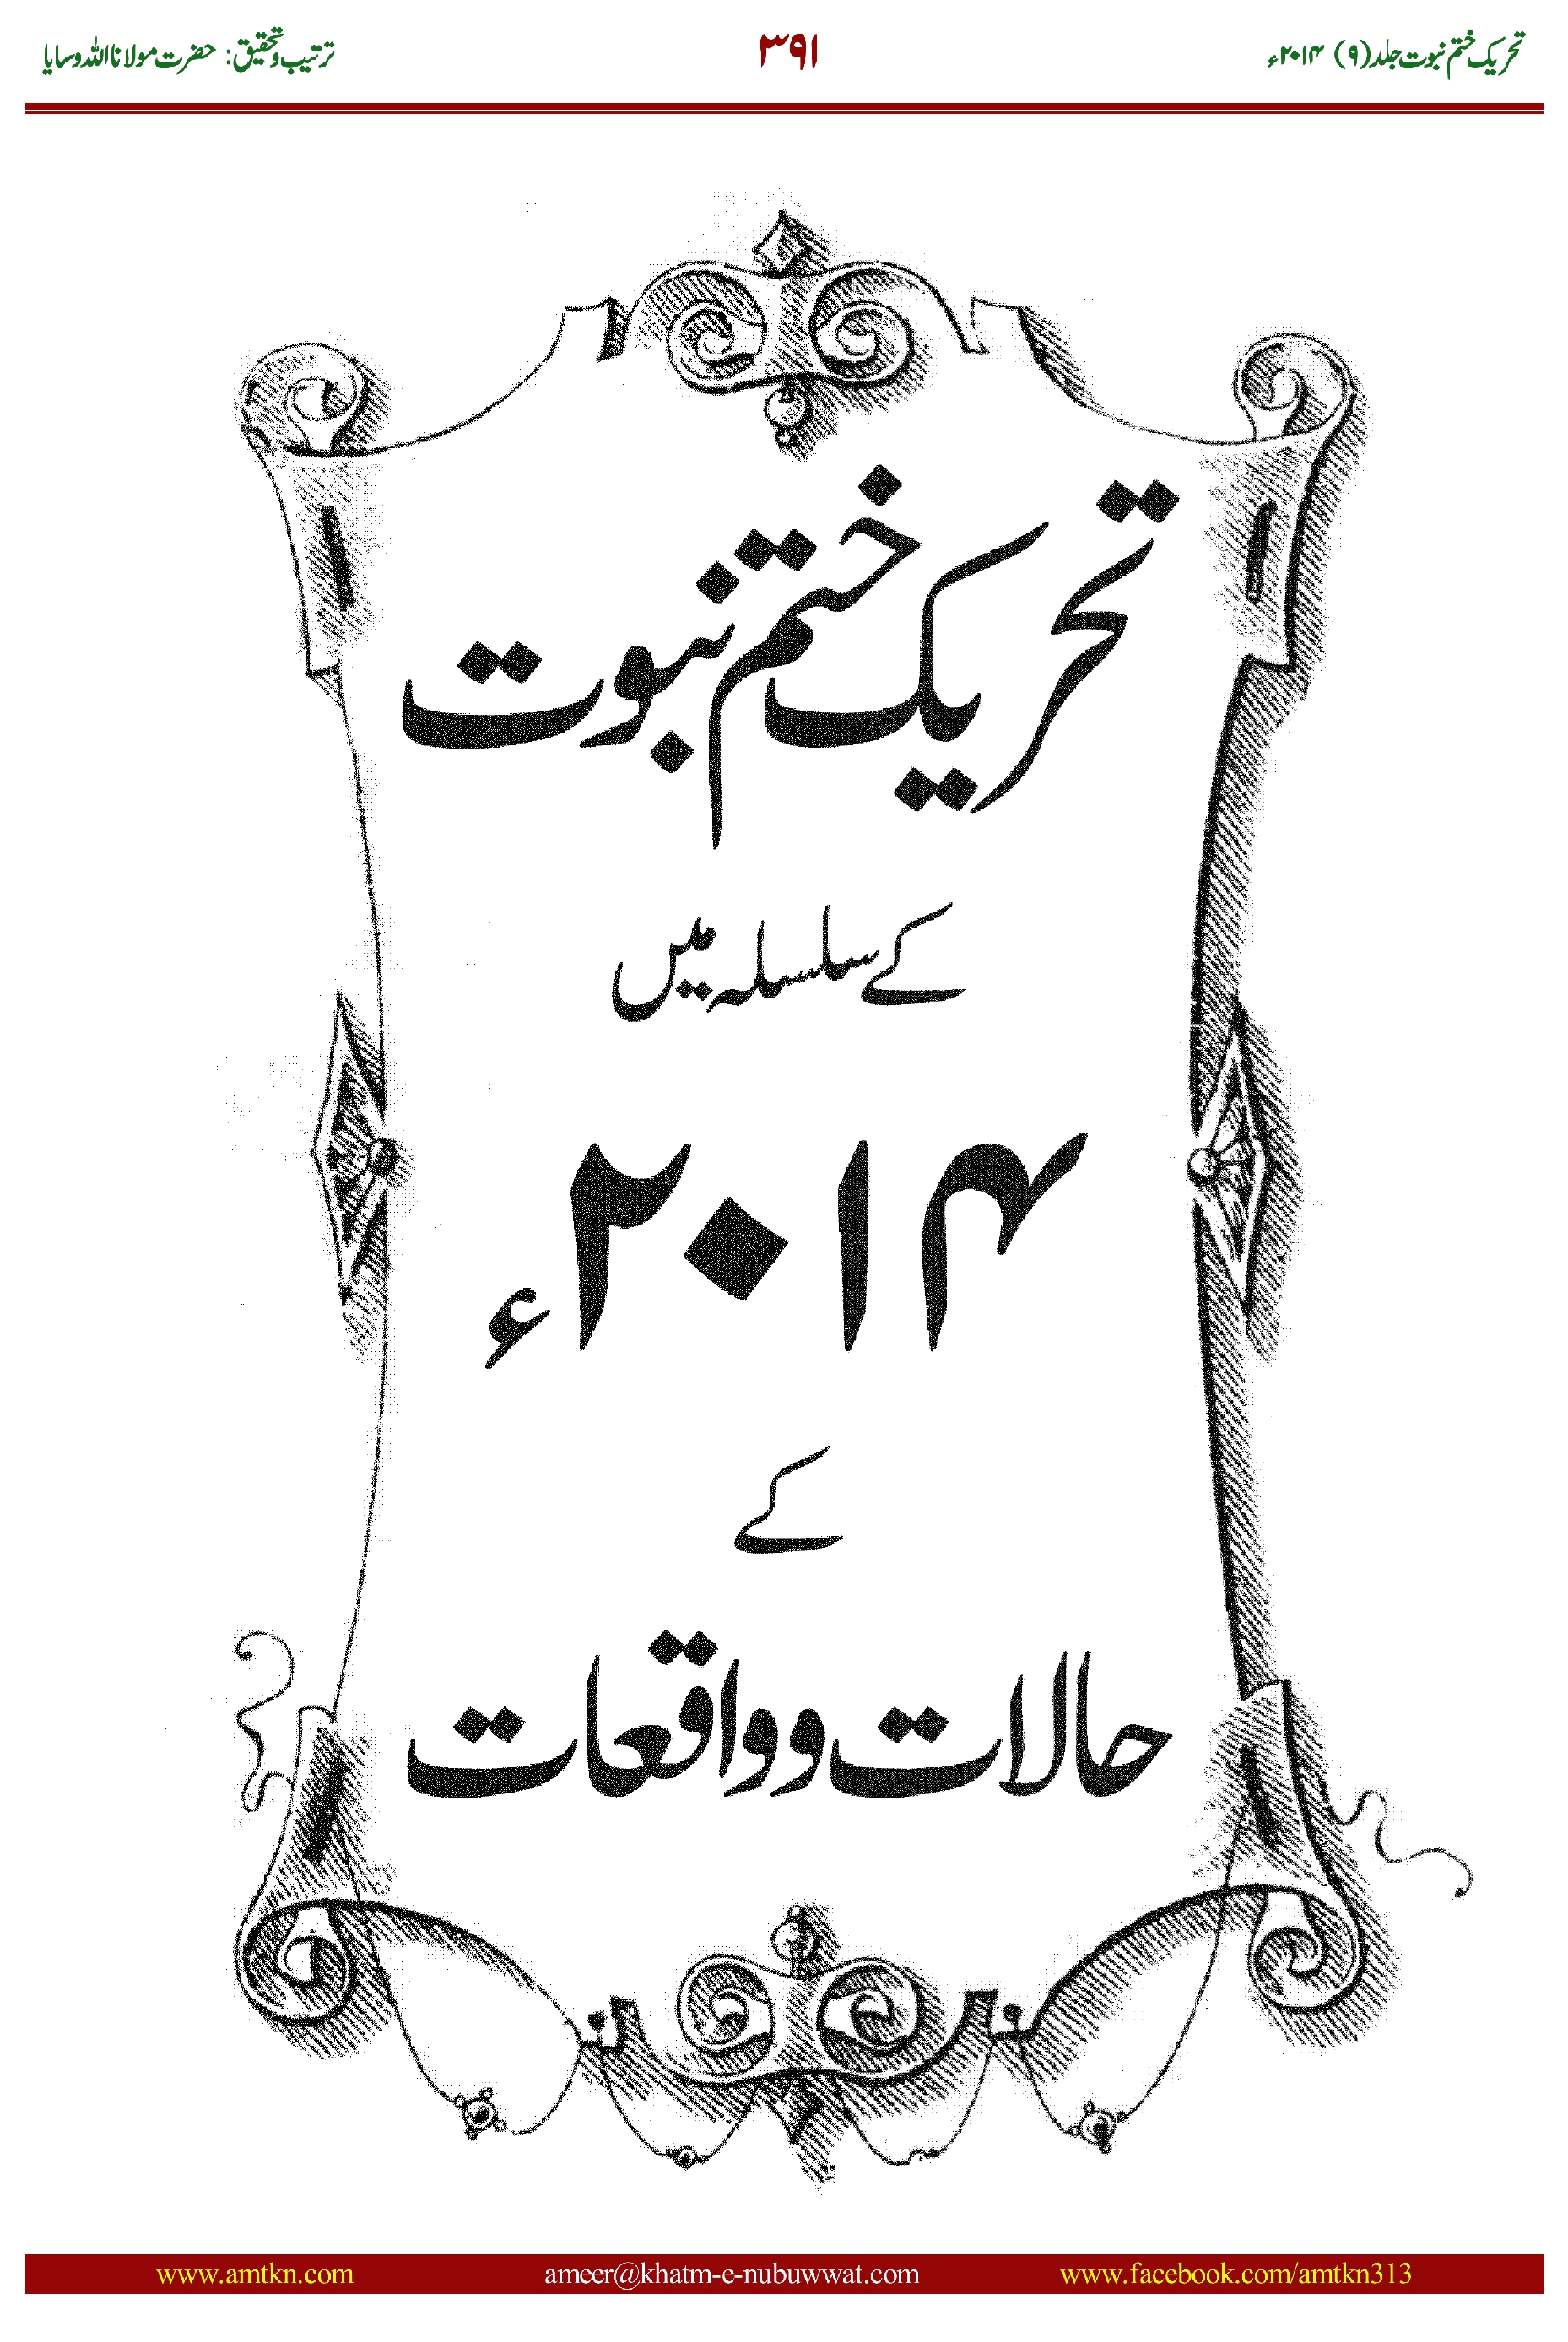 تحریک ختم نبوت جلد (۹) ۲۰۱۴ء
۳۹۱
ترتیب و تحقیق: حضرت مولانا اللہ وسایا
تحریک ختم نبوت
کے سلسلہ میں
۲۰۱۴ء
کے
حالات و واقعات
www.amtkn.com ameer@khatm-e-nubuwwat.com www.facebook.com/amtkn313